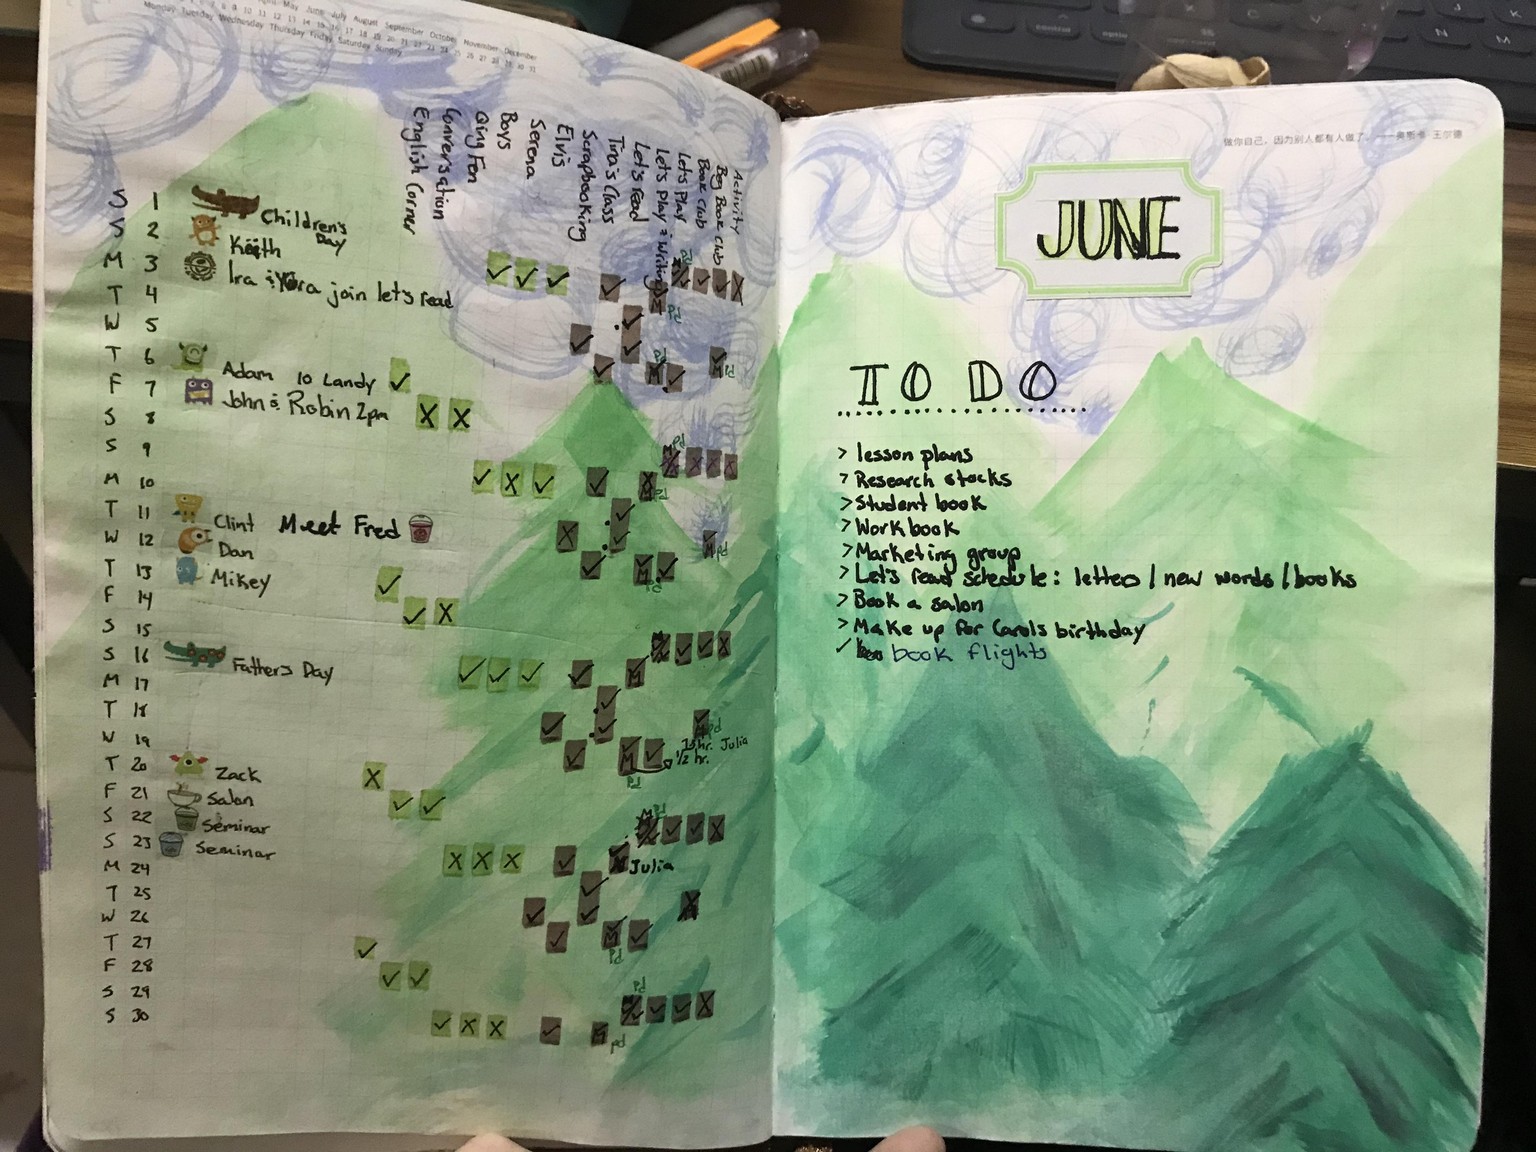 April May June July August September October November December
Monday Tuesday Wednesday Thursday Friday Saturday Sunday
English Corner
Conversation
Qing Fen
Boys
Serena
Elvis
Scrapbooking
Tina's Class
Let's read
Let's play & Writing
Let's Play
Book Club
Boy Book Club
Activity
S 1 Children's Day
S 2 Keith
M 3 Ira & Yora join let's read
T 4
W 5
T 6 Adam 10 Landy
F 7 John & Robin 2pm
S 8
S 9
M 10
T 11 Clint Meet Fred
W 12 Dan
T 13 Mikey
F 14
S 15
S 16 Fathers Day
M 17
T 18
W 19
1/2 hr. Julia
1/2 hr.
T 20 Zack
F 21 Salon
S 22 Seminar
S 23 Seminar
M 24 Julia
T 25
W 26
T 27
F 28
S 29
S 30
做你自己，因为别人都有人做了。——奥斯卡·王尔德
JUNE
TO DO
> lesson plans
> Research stocks
> Student book
> Workbook
> Marketing group
> Let's read schedule: letters / new words / books
> Book a salon
> Make up for Carols birthday
✓ book flights